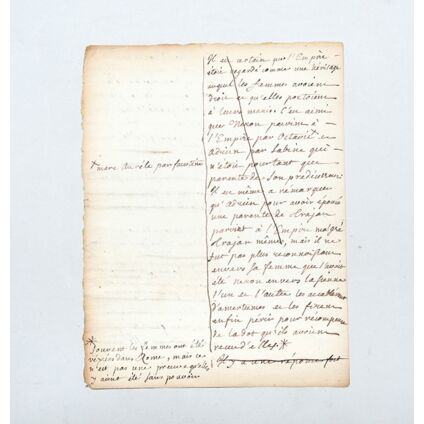 Il est certain que l'Empire
étoit regardé comme une héritage
auquel les femmes avoient
droit et qu'elles portoient
à leurs maris. C'est ainsi
que Neron parvint à
l'Empire par Octavie et
adrien par Sabine qui
n'étoit pourtant que
parente de son predécesseur
Il est même a remarquer
qu'adrien pour avoir épousé
une parente de trajan
parvint à l'Empire malgré
trajan même, mais il ne
fut pas plus reconnoissant
envers sa femme que l'avoit
été neron envers la sienne
l'un et l'autre les accablerent
d'amertumes et les firent
enfin périr pour récompense
de la dot qu'ils avoient
receu d'elles *
Il y a une réponse fort
* marc Aurèle par faustine
* Souvent les femmes ont été
vexées dans Rome, mais ce
n'est pas une preuve qu'elles
y aient été sans pouvoir